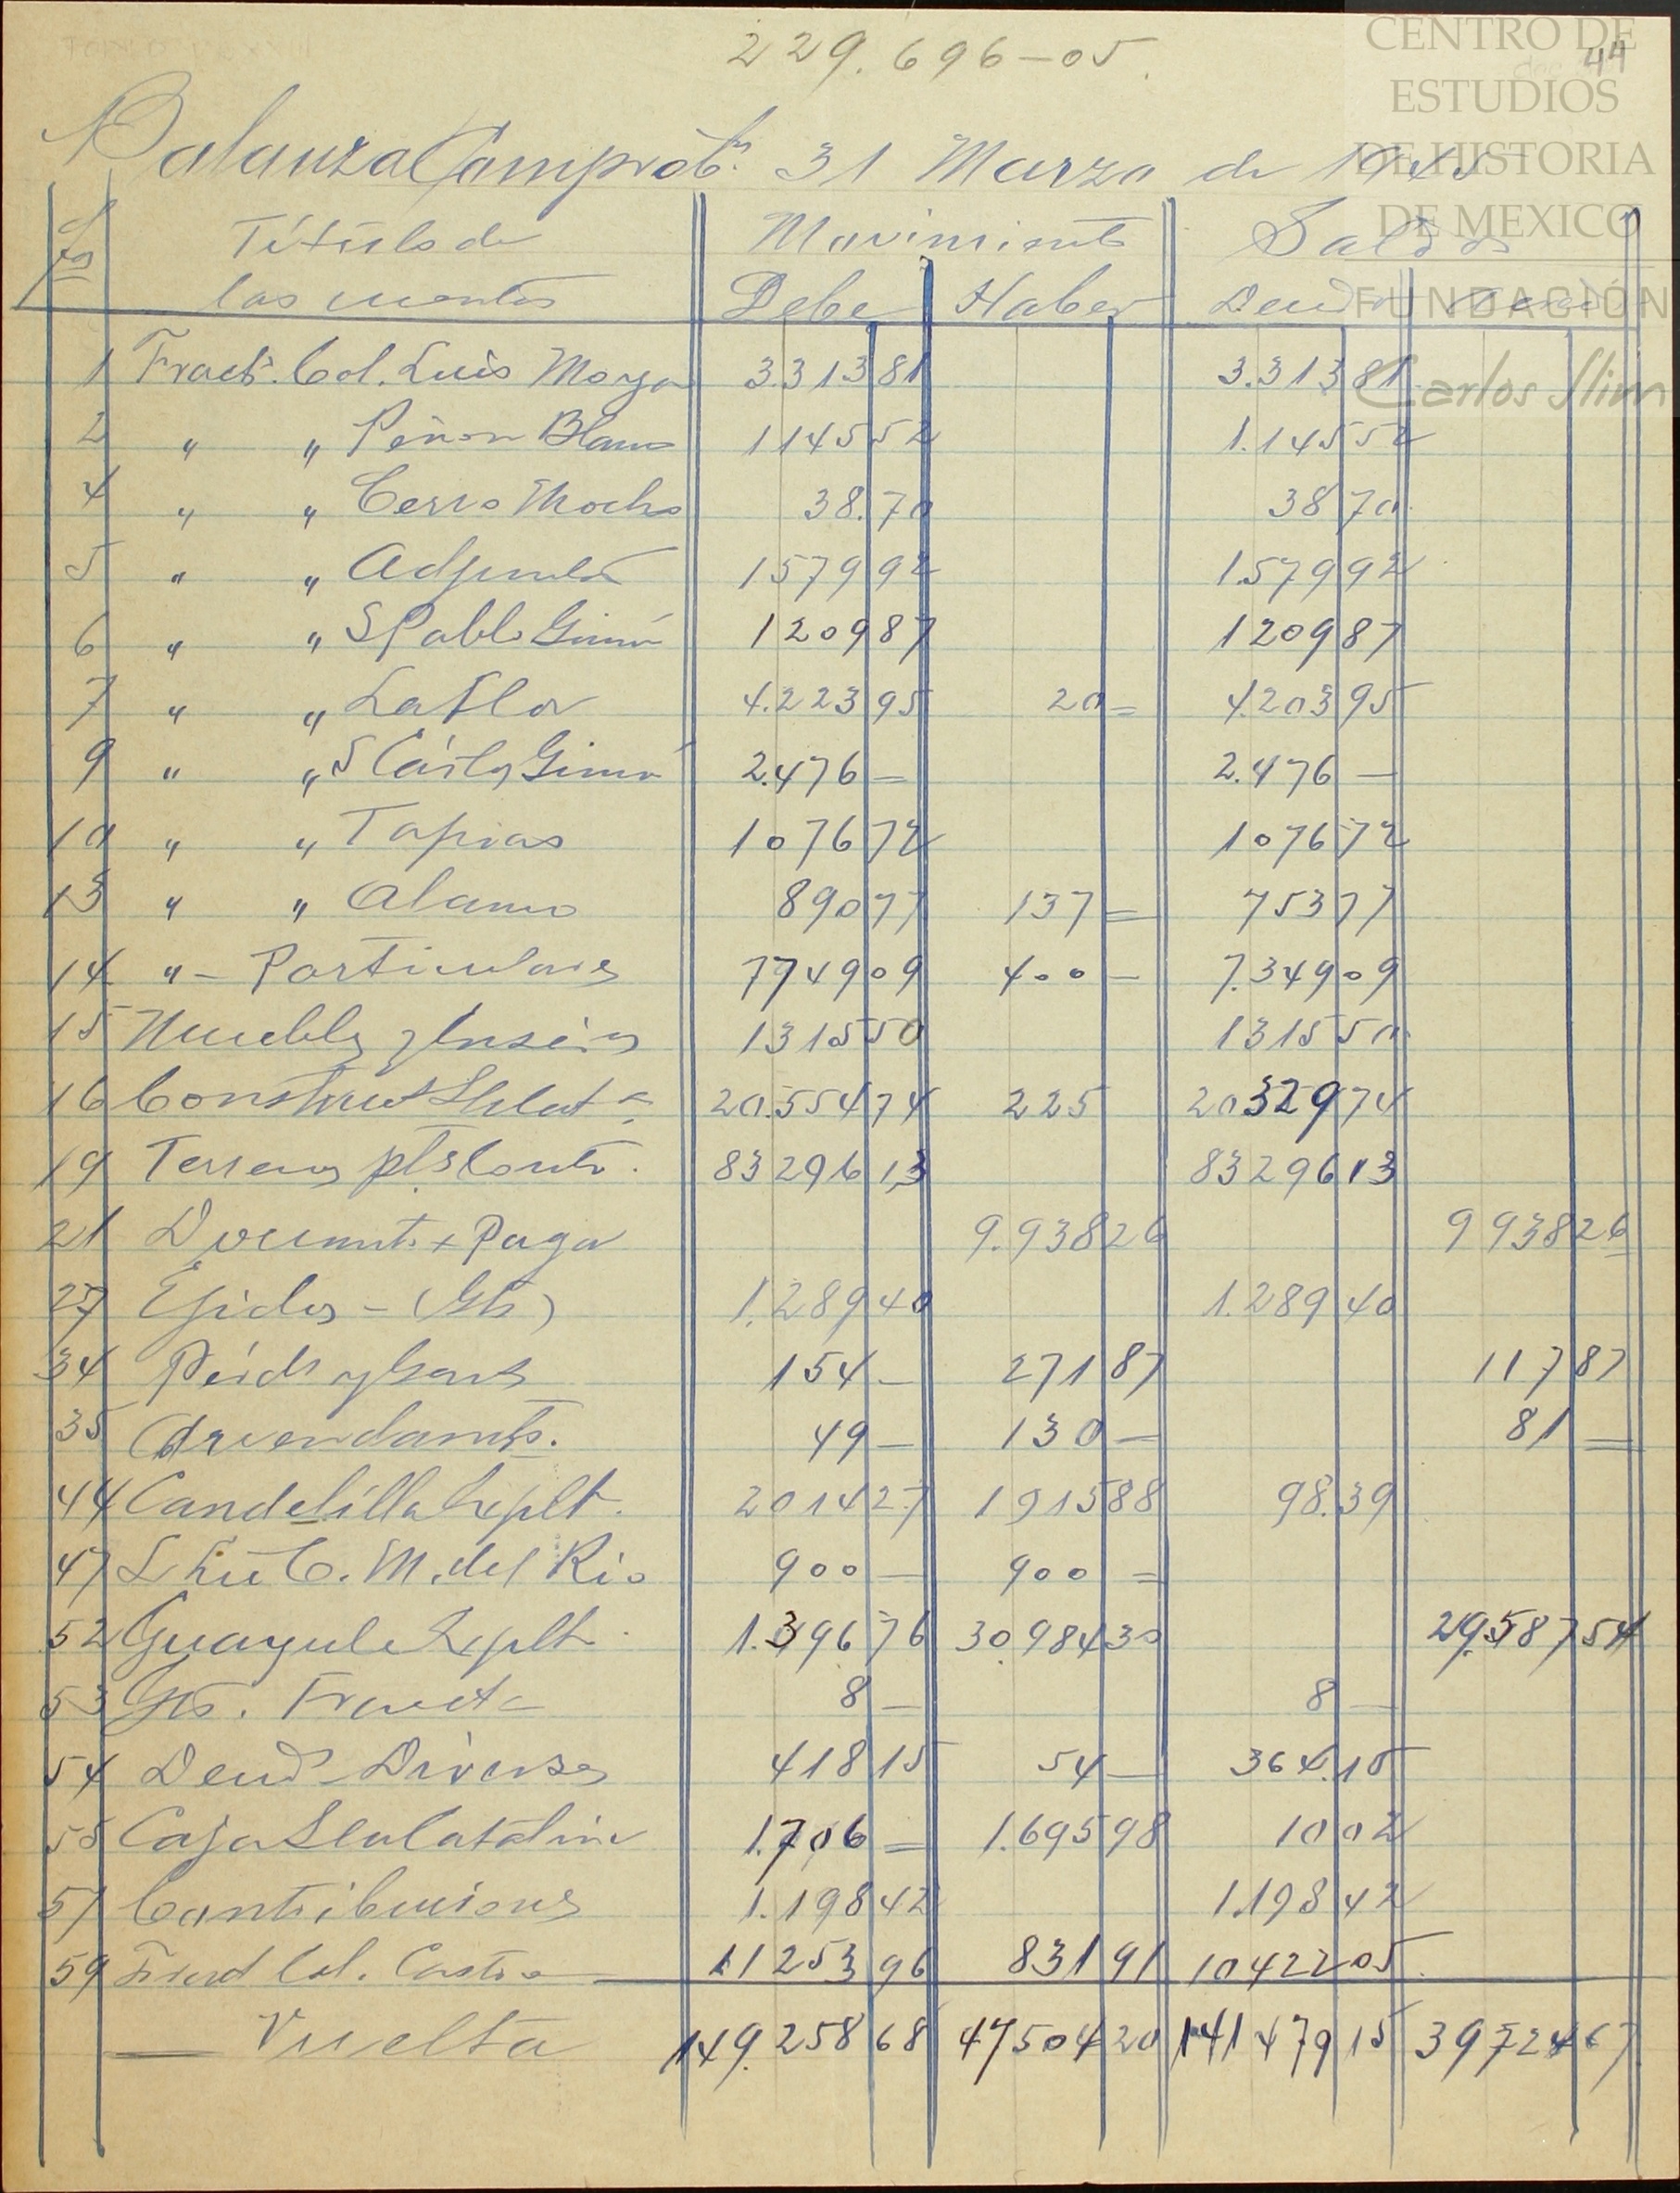 229.696-05.
44
CENTRO DE
ESTUDIOS
DE HISTORIA
DE MEXICO
FUNDACIÓN
Carlos Slim
Balanza Comprobn. 31 Marzo de 1945
Fs Título de Movimiento Saldos
las cuentas Debe Haber Deud
1 Fracto. Col. Luis Moya 3.313 81 3.313 81
2 " " Peñon Blanco 1145 52 1.145 52
4 " " Cerro Mocho 38.70 38 70
5 " " Adjuntas 1579 92 1.579 92
6 " " S Pablo Gimn 1209 87 1209 87
7 " " La Flor 4.223 95 20 = 4.203 95
9 " " S Cárlos Gimn 2.476 = 2.476 —
10 " " Tapias 1076 72 1076 72
13 " " Alamo 890 77 137 = 753 77
14 " - Particulares 7749 09 400 — 7.349 09
15 Muebles y Enseres 1315 50 1315 50
16 Construc 20.554 74 225 20 329 74
19 Terrenos 83296 13 83296 13
21 Documts x Pagar 9.938 26 9938 26
27 Ejidos - (Gts) 1.289 40 1.289 40
34 Perds y Gans 154 — 271 87 117 87
35 Arrendamts. 49 — 130 — 81 =
44 Candelilla Explt. 2014 27 1915 88 98.39
47 C. M. del Rio 900 — 900 =
52 Guayule Explt. 1.396 76 30.984 30 29.587 54
53 Gts. Fract 8 — 8 —
54 Deuds Diversos 418 15 54 — 364.15
55 Caja Sta Catalina 1.706 = 1.695 98 10 02
57 Contribuciones 1.198 42 1.198 42
59 Fracd Col. Castro 11253 96 831 91 10422 05
— Vuelta 149.258 68 47504 20 141 479 15 39724 67